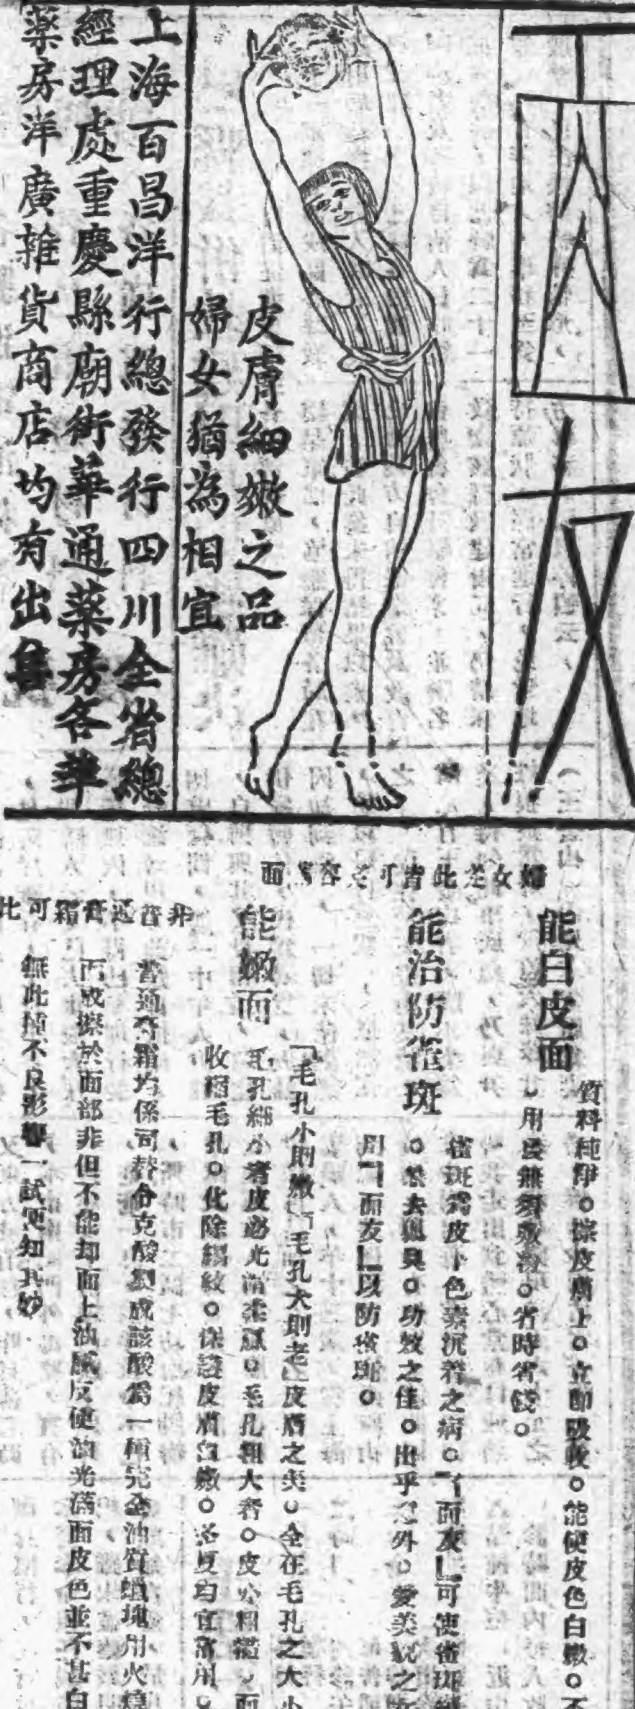 面友
皮膚細嫩之品
婦女猶為相宜
上海百昌洋行總發行四川全省總
經理處重慶縣廟街華通藥房各華
藥房洋廣雜貨商店均有出售
能白皮面
質料純淨。擦皮膚上。立即吸收。能使皮色白嫩。不
用後無須敷粉。省時省錢。
能治防雀斑
雀斑為皮下色素沉着之病。「面友」可使雀斑
之佳。出乎意外。愛美貌之
用「面友」以防雀斑。
能嫩面
「毛孔小則嫩」「毛孔大則老」皮膚之美。全在毛孔之大小
毛孔細小者皮必光滑柔膩。毛孔粗大者。皮必粗糙。面
收縮毛孔。化除縐紋。保護皮膚白嫩。冬夏均宜常用。
非普通膏霜可比
普通膏霜均係司替令克酸製成該酸為一種完全油質蠟塊用火燒
而成擦於面部非但不能却面上油膩反使油光滿面皮色並不甚白
無此種不良影響一試便知其妙